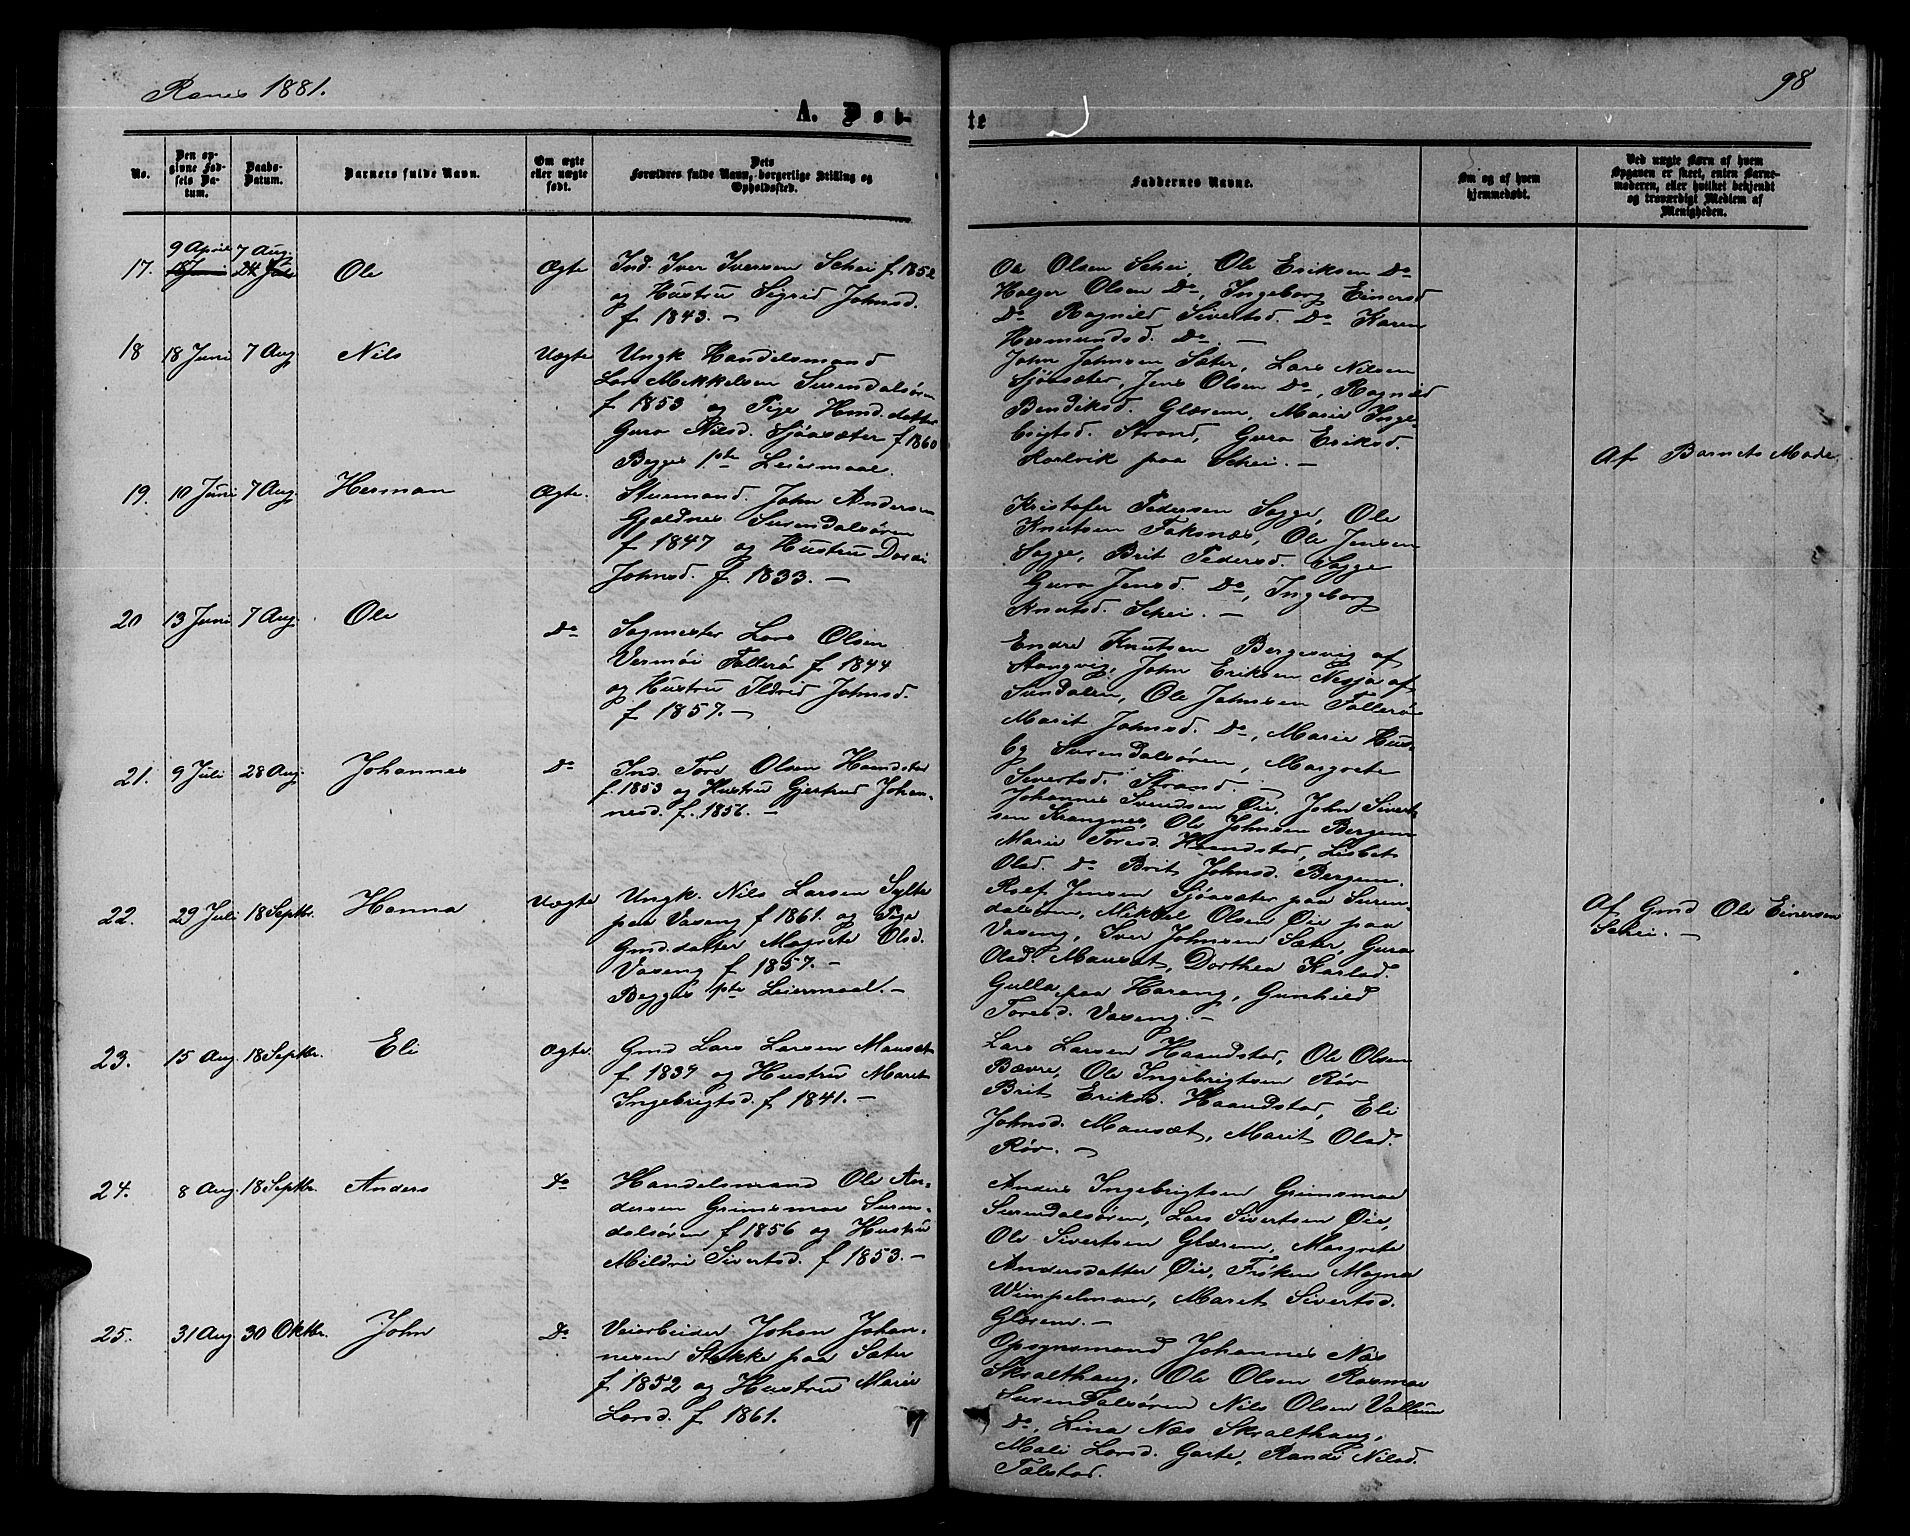 Ranes 1881.
98
A. Døb-
te
No.
Den op-
givne Fød-
sels Da-
tum.
Daabs-
Datum.
Barnets fulde Navn.
Om ægte
eller uægte
født.
Dets
Forældres fulde Navn, borgerlige Stilling og
Opholdssted.
Faddernes Navne.
Om og af hvem
hjemmedøbt.
Ved uægte Børn af hvem
Opgaven er skeet, enten Barne-
moderen, eller hvilket bekjendt
og troværdigt Medlem af
Menigheden.
17.
9 April
7 Aug.
Ole
Ægte
Ind. Iver Iversen Schei f 1852
og Hustru Sigrid Johnsd.
f 1843. –
Ole Olsen Schei, Ole Eriksen Do
Holger Olsen Do, Ingeborg Einersd
Do Ragnild Sivertsd. Do Karen
Hermundsd. Do. –
18
18 Juni
7 Aug.
Nils
Uægte
Ungk. Handelsmand
Lars Mikkelsen Surendalsøren
f 1853 og Pige Hmd. datter
Guro Nilsd. Sjøasæter f 1860
Begges 1ste Leiermaal.
John Johnsen Sæter, Lars Nilsen
Sjøasæter, Jens Olsen Do, Ragnild
Bendiksd. Glærem, Marie Inge-
brigtsd. Strand, Guro Eriksd.
Karlvik paa Schei. –
Af Barnets Mode
19.
10 Juni
7 Aug.
Herman
Ægte.
Stuemand. John Andersen
Gjeldnes Surendalsøren
f 1847 og Hustru Dorai
Johnsd. f 1833. –
Kristofer Pedersen Sogge, Ole
Knutsen Foksnæs, Ole Jensen
Sogge, Brit Pedersd. Sogge
Guro Jensd. Do, Ingeborg
Knutsd. Schei. –
20
13 Juni
7 Aug.
Ole
Do
Sagmester Lars Olsen
Vermøi Tellerø f 1844
og Hustru Ildrid Johnsd.
f 1857. –
Endre Knutsen Bergesvig af
Stangvig, John Eriksen Nesja af
Sundalen, Ole Johnsen Tellerø
Marit Johnsd. Do, Marie Hus-
by Surendalsøren, Margrete
Sivertsd. Strand. –
21.
9 Juli
28 Aug.
Johannes
Do
Ind. Tore Olsen Haandstad
f 1853 og Hustru Gjertrud Johan-
nesd. f. 1856. –
Johannes Svendsen Øie, John Sivert-
sen Krangnes, Ole Johnsen Bergem
Marie Toresd. Haandstad, Lisbet
Olsd. Do Brit Johnsd. Bergem.
22.
29 Juli
18 Septbr.
Hanna
Uægte
Ungk. Nils Larsen Sylte
paa Vaseng f 1861. og Pige
Gmd.datter Magrete Olsd.
Vaseng f 1857. –
Begges 1ste Leiermaal. –
Rolf Jensen Sjøasæter paa Suren-
dalsøren, Mikkel Olsen Øie paa
Vaseng, Iver Johnsen Sæter, Guro
Olsd. Mauset, Dorthea Karlsd.
Gulla paa Harang, Gunhild
Toresd. Vaseng. –
Af Gmd Ole Einersen
Schei. –
23.
15 Aug.
18 Septbr.
Eli
Ægte.
Gmd Lars Larsen Mauset
f 1839 og Hustru Marit
Ingebrigtsd. f 1841. –
Lars Larsen Haandstad, Ole Olsen
Bævre, Ole Ingebrigtsen Røv
Brit Eriksd. Haandstad, Eli
Johnsd. Mausæt, Marit Olsd.
Røv. –
24.
8 Aug.
18 Septbr.
Anders
Do
Handelsmand Ole An-
dersen Grimsmoe Suren-
dalsøren f 1856 og Hustru
Mildri Sivertsd. f 1853. –
Anders Ingebrigtsen Grimsmoe
Surendalsøren, Lars Sivertsen Øie,
Ole Sivertsen Glærem, Margrete
Andersdatter Øie, Frøken Magna
Wimpelman, Marit Sivertsd.
Glærem. –
25.
31 Aug
30 Oktbr.
John
Do
Veiarbeider Johan Johan-
nesen Stokke paa Sæter
f 1852 og Hustru Marie
Larsd. f 1861.
Opsynsmand Johannes Næs
Skralthaug, Ole Olsen Rosmoe
Surendalsøren Nils Olsen Vullum
Do, Lina Næs Skralthaug,
Mali Larsd. Garte, Randi Nilsd.
Telstad.